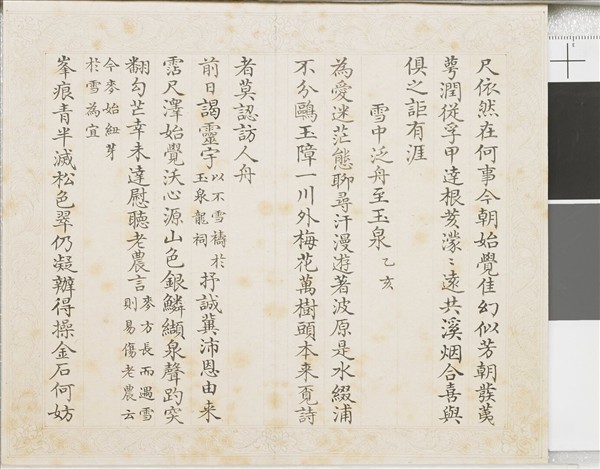 尺依然在何事今朝始覺佳幻似芳朝發荑
萼潤從孚甲達根荄濛〻遠共溪烟合喜與
俱之詎有涯
雪中泛舟至玉泉 乙亥
為愛迷茫態聊尋汗漫遊著波原是水綴浦
不分鷗玉障一川外梅花萬樹頭本來覓詩
者莫認訪人舟
前日謁靈宇 以不雪禱於玉泉龍祠 抒誠冀沛恩由来
霑尺澤始覺沃心源山色銀鱗纈泉聲趵突
翻勾芒幸未達慰聽老農言 麥方長而遇雪則易傷老農云
今麥始紐芽於雪為宜
峯痕青半減松色翠仍凝辦得操金石何妨